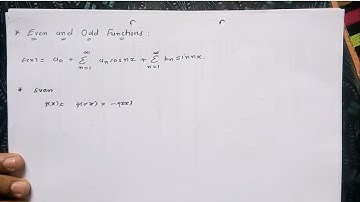 * Even and Odd Functions :
f(x) = a₀ + ∞ Σ n=1 aₙ cosnx + ∞ Σ n=1 bₙ sinnx.
* Even
f(x) =